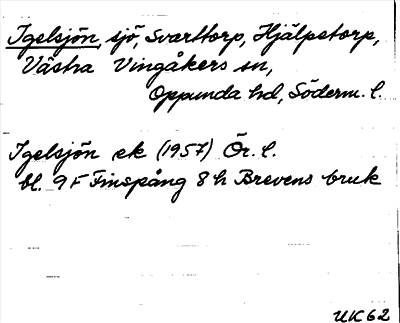 Igelsjön, sjö, Svarttorp, Hjälpstorp,
Västra Vingåkers sn,
Oppunda hd, Söderm. l.
Igelsjön ek (1957) Ör. l.
bl. 9F Finspång 8 h Brevens bruk
UK 62